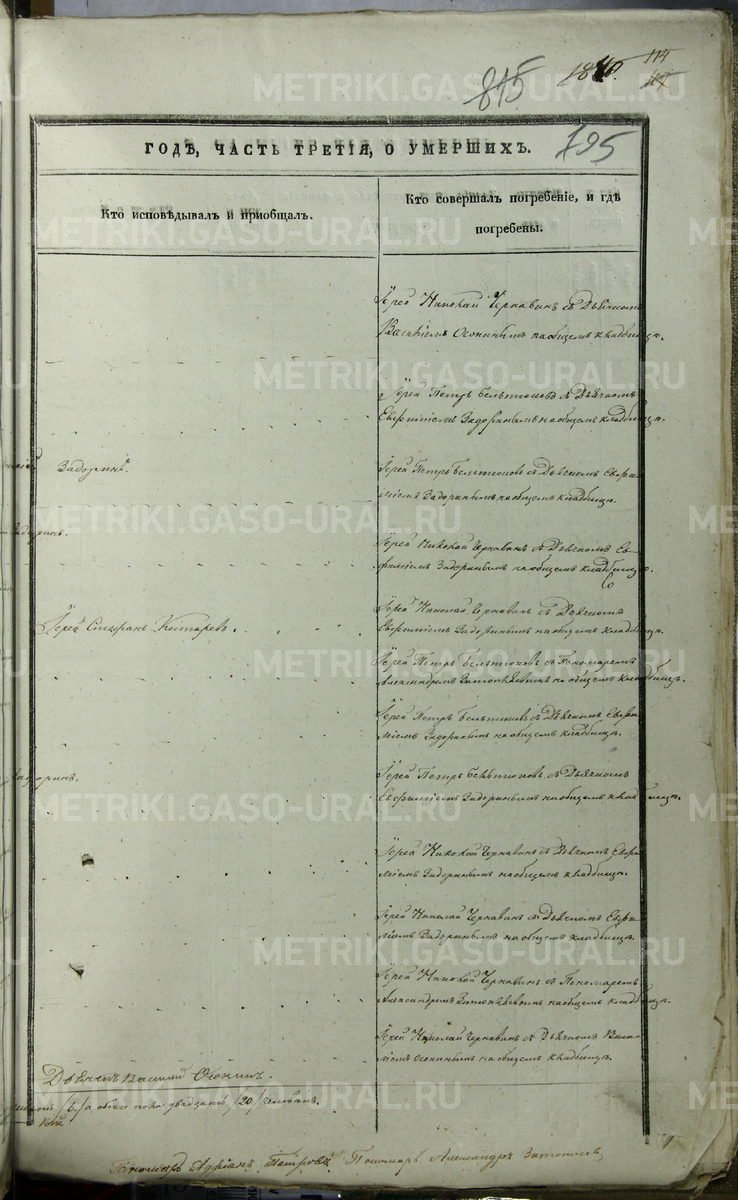 815
1840.
114
117
795
ГОДѢ, ЧАСТЬ ТРЕТІЯ, О УМЕРШИХЪ.
Кто исповѣдывалъ и пріобщалъ.
Кто совершалъ погребеніе, и гдѣ
погребены.
Іерей Николай Чернавинъ съ Дьячкомъ
Василіемъ Осокинымъ на общемъ кладбищѣ.
Іерей Петръ Бельтюковъ съ Дьячкомъ
Евфиміемъ Задоринымъ на общемъ кладбищѣ.
Задоринъ.
Іерей Петръ Бельтюковъ съ Дьячкомъ Евфи-
міемъ Задоринымъ на общемъ кладбищѣ.
Задоринъ.
Іерей Николай Чернавинъ съ Дьячкомъ Ев-
фиміемъ Задоринымъ на общемъ кладбищѣ.
Іерей Стефанъ Костаревъ.
Іерей Николай Чернавинъ съ Дьячкомъ
Евфиміемъ Задоринымъ на общемъ кладбищѣ.
Іерей Петръ Бельтюковъ съ Пономаремъ
Александромъ на общемъ кладбищѣ.
Іерей Петръ Бельтюковъ съ Дьячкомъ Евфи-
міемъ Задоринымъ на общемъ кладбищѣ.
Задоринъ.
Іерей Петръ Бельтюковъ съ Дьячкомъ
Евфиміемъ Задоринымъ на общемъ кладбищѣ.
Іерей Николай Чернавинъ съ Дьячкомъ Евфи-
міемъ Задоринымъ на общемъ кладбищѣ.
Іерей Николай Чернавинъ съ Дьячкомъ Евфи-
міемъ Задоринымъ на общемъ кладбищѣ.
Іерей Николай Чернавинъ съ Пономаремъ
Александромъ на общемъ кладбищѣ.
Іерей Николай Чернавинъ съ Дьячкомъ Васи-
ліемъ Осокинымъ на общемъ кладбищѣ.
Дьячекъ Василій Осокинъ.
/6/ а обоего пола двадцать /20/ человѣкъ.
кій
Пономарь Адріанъ Петровъ Пономарь Александръ
METRIKI.GASO-URAL.RU